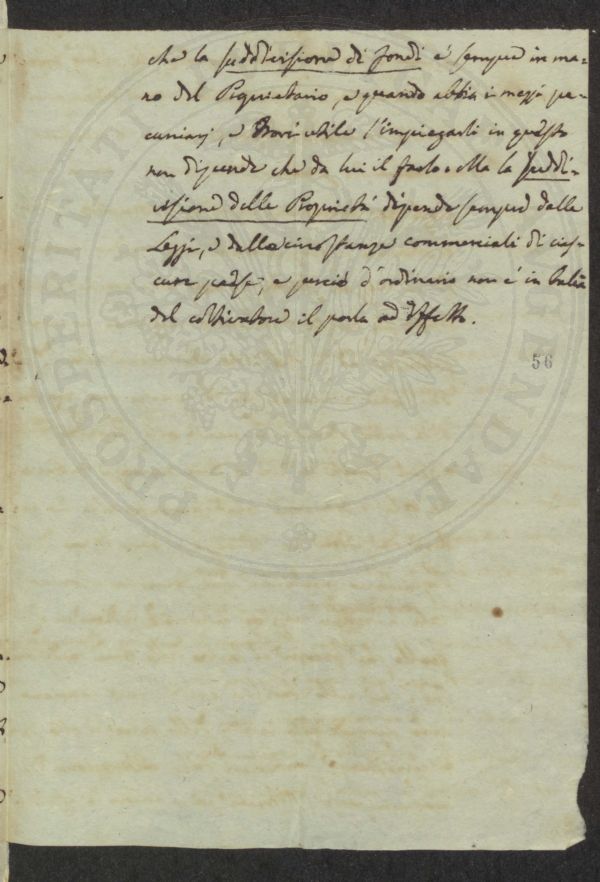 che la suddivisione di fondi é sempre in ma=
no del Proprietario, e quando abbia i mezzi pe=
cuniarj, e trovi utile l'impiegarli in questo
non dipende che da lui il farlo. Ma la suddi=
visione delle Proprietá dipende sempre dalle
Leggi, e dalle circostanze commerciali di cias=
cun paese, e perció d'ordinario non é in balia
del coltivatore il porla ad effetto.
56
PROSPERITATI AUGENDAE